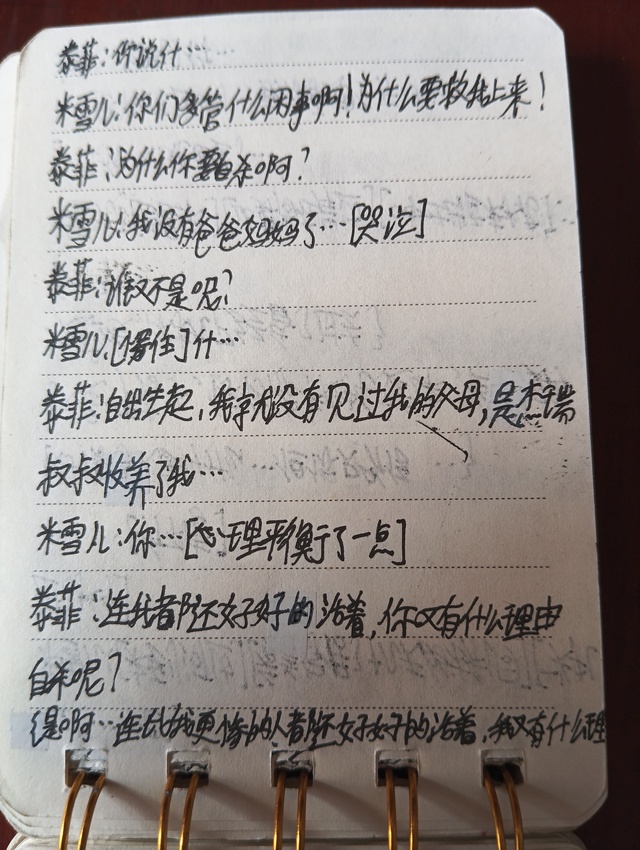 泰菲:你说什…
米雪儿:你们多管什么闲事啊!为什么要救我上来!
泰菲:为什么你要自杀啊?
米雪儿:我没有爸爸妈妈了…[哭泣]
泰菲:谁又不是呢?
米雪儿:[愣住]什…
泰菲:自出生起,我就没有见过我的父母,是杰瑞
叔叔收养了我…
米雪儿:你…[心理平衡了一点]
泰菲:连我都还好好的活着,你又有什么理由
自杀呢?
是啊…连比我更惨的人都还好好的活着,我又有什么理